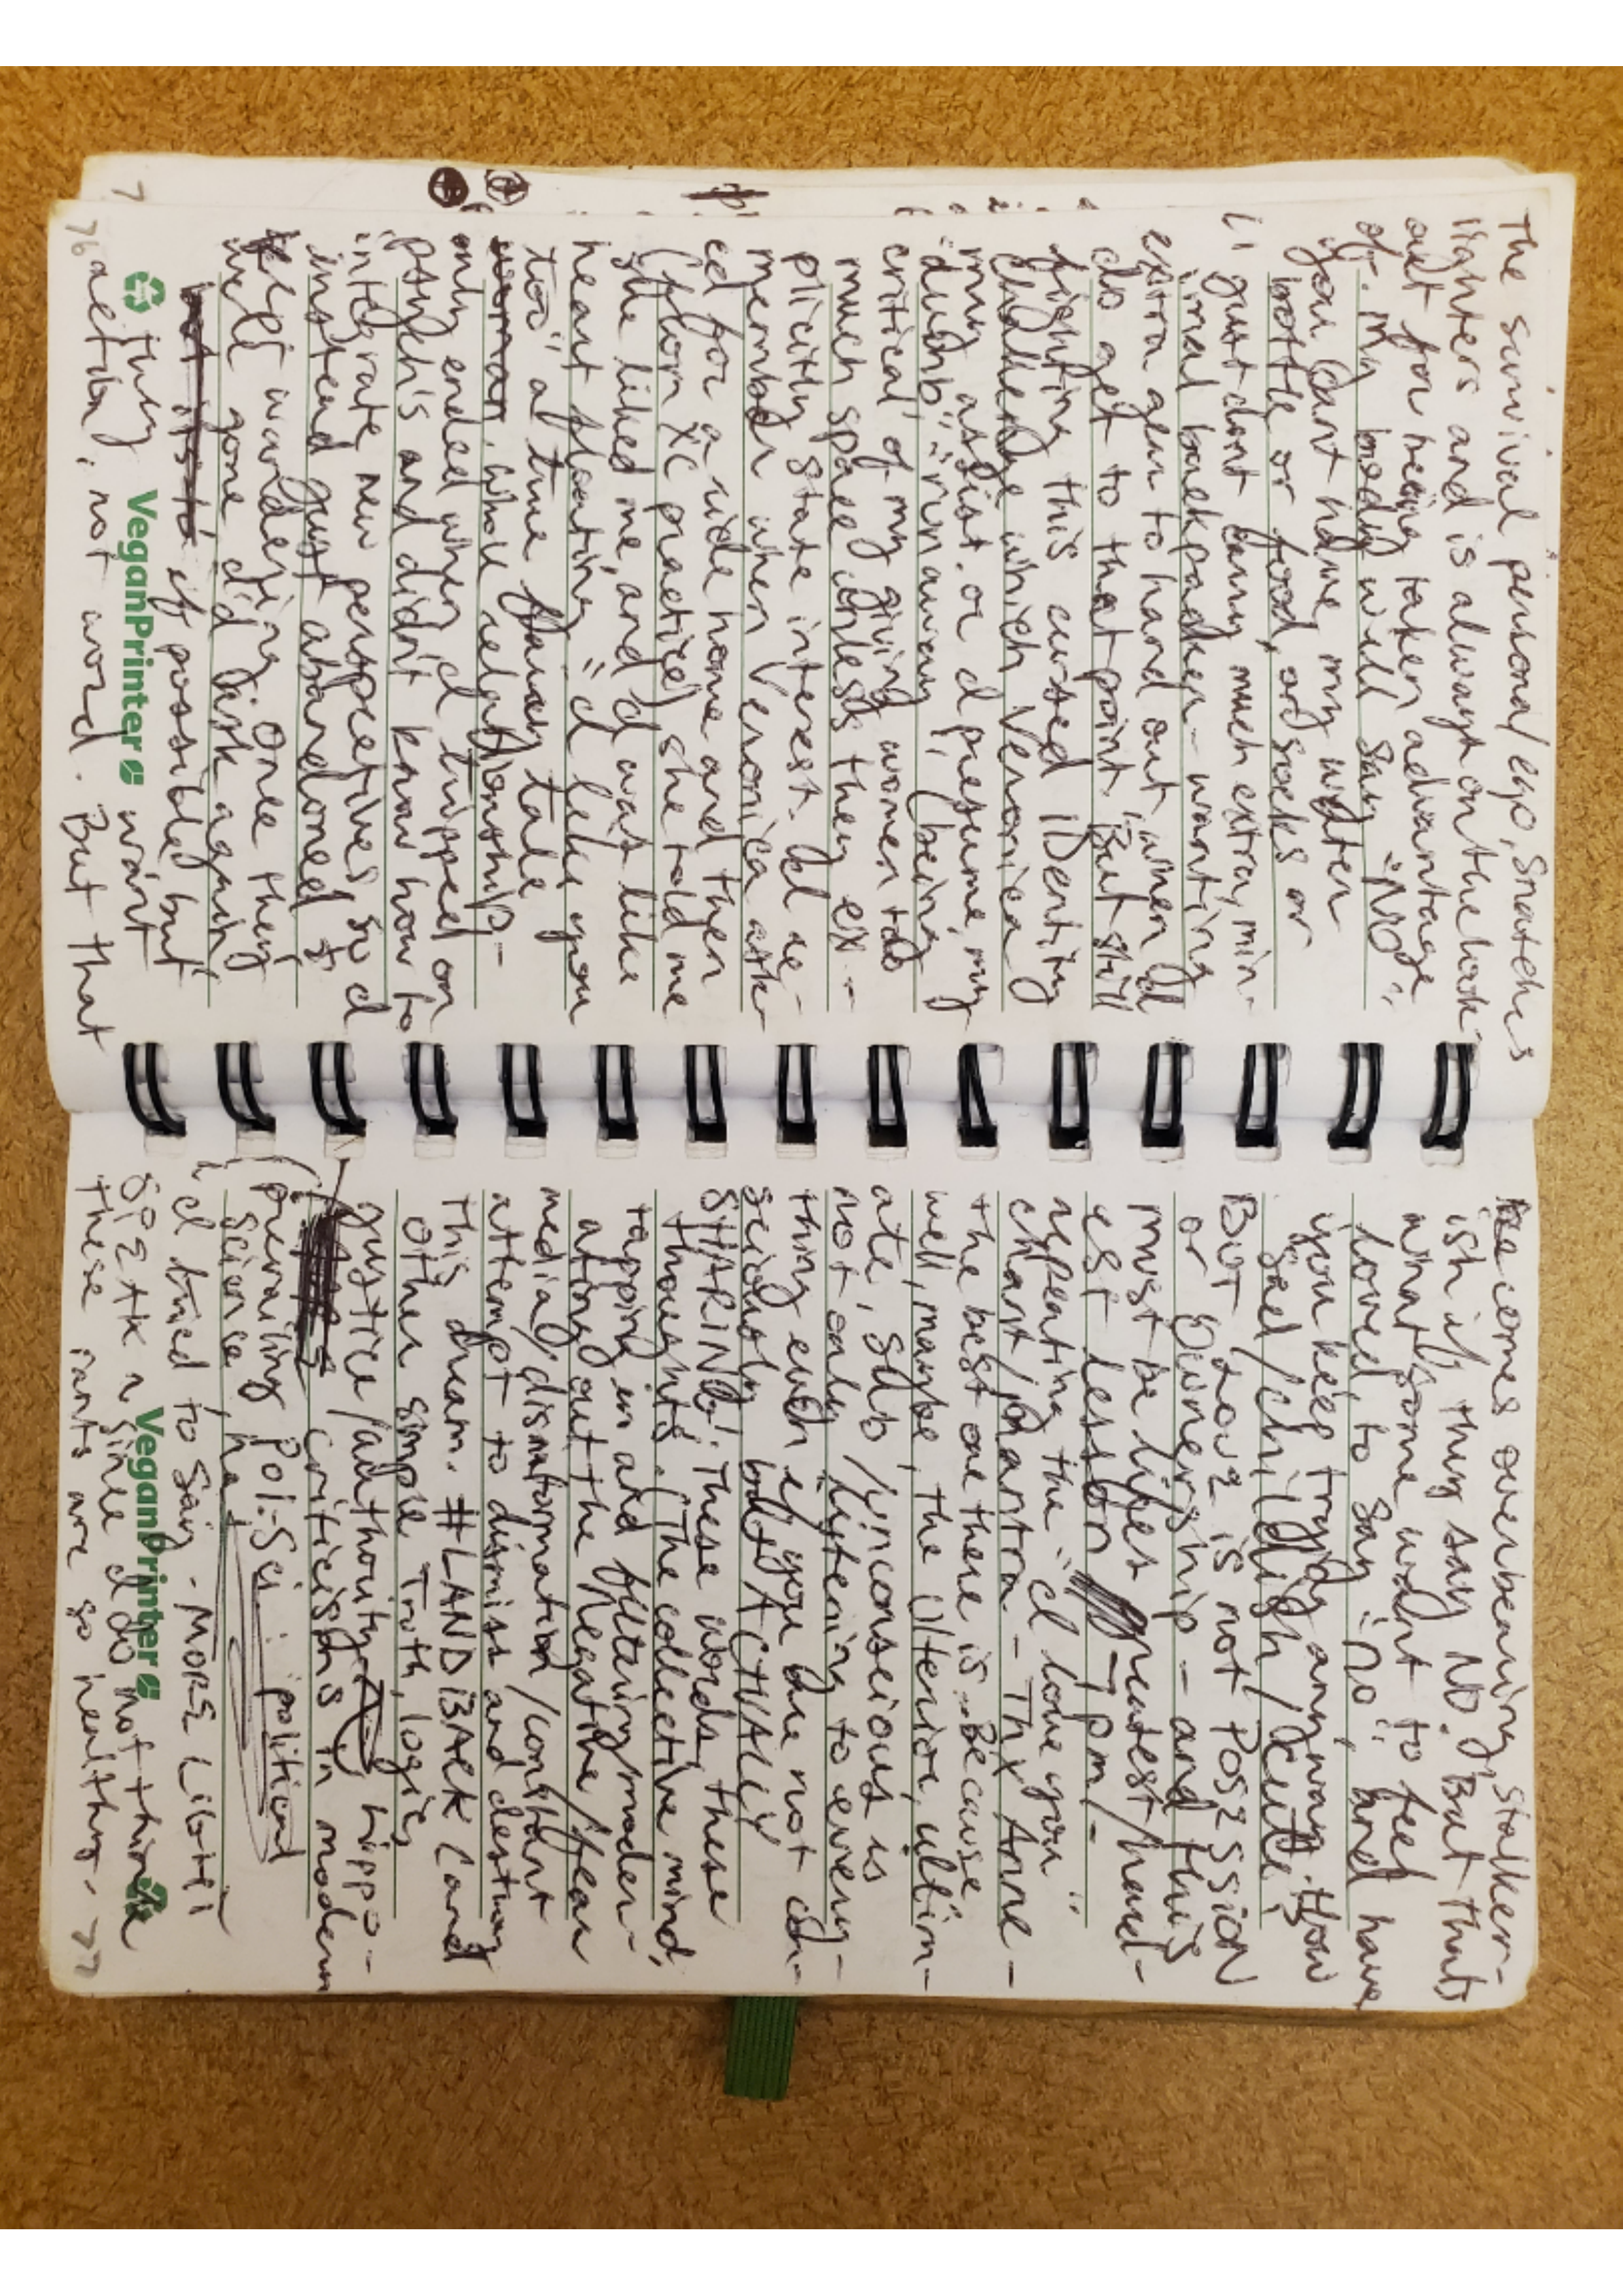 The survival persona/ego, snatches
lighters and is always on the look
out for being taken advantage
of. My body will say "NO",
you can't have my water
bottle or food, or socks or
I just dont carry much extra, min-
imal backpacker - wanting
extra gear to hand out when I
do get to that point. But still
fighting this cursed IDentity
challenge which Veronica
may assist. or I presume, my
"dumb", "runaway", (being
critical of my giving women too
much space unless they ex-
plicitly state interest. I'd re-
member when Veronica ask-
ed for a ride home and then
(from XC practice) she told me
she liked me, and I was like
heart floating "I like you
too", a true fairy tale
woman. whole relationship-
only ended when I tripped on
psych's and didn't know how to
integrate new perspectives, so I
instead just abandoned &
kept wandering. Once they
were gone did I ask again
but its to if possible, but
they want
VeganPrinter
76 action, not word. But that
becomes overbearing, stalker-
ish if they say NO. But thats
what some want to feel
loved, to say "no", and have
you keep trying anyway. How
sad/childish/cute!
BUT LOVE is not POSESSION
or Ownership - and this
must be lifes greatest/hard-
est lesson - 7pm/-
repeating the "I love you"
chant/mantra - Thx Anne -
the best one there is - Because
well, maybe, the Ulterior, ultim-
ate, sub/unconscious is
not only listening to every-
thing even if you are not con-
sciously but ACTUALLY
SHARING! These words, these
thoughts. (The collective mind,
tapping in and filtering/moder-
ating out the negative/fear
media/disinformation/constant
attempt to dismiss and destroy
this dream. #LANDBACK (and
other simple truth, logic,
justice/authority hippo-
criticisms in modern
(prevailing Pol-Sci: political
science, ha!
I tried to say - MORE Liberi
SPEAK n since I do not think
VeganPrinter
these rants are so healthy - 77